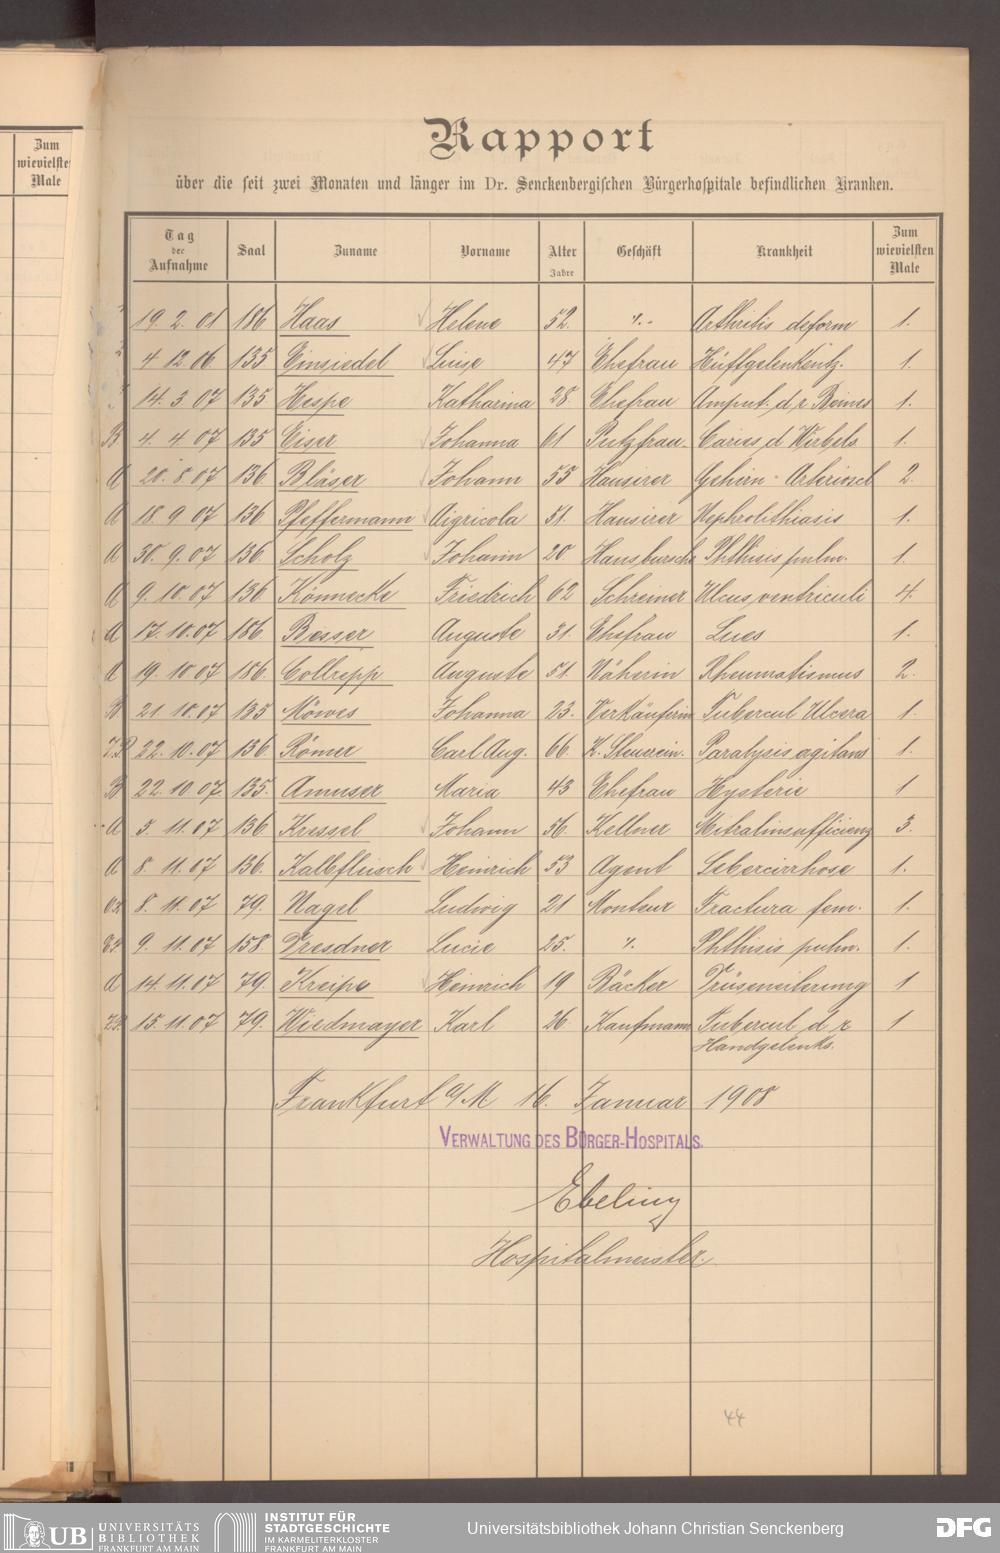 Zum
wievielsten
Male
Rapport
über die seit zwei Monaten und länger im Dr. Senckenbergischen Bürgerhospitale befindlichen Kranken.
Tag der Aufnahme Saal Zuname Vorname Alter Jahre Geschäft Krankheit Zum wievielsten Male
19. 2. 01 186 Haas Helene 52. Arthritis deform 1.
4 12 06 135 Einsiedel Luise 47 Ehefrau Hüftgelenkentz. 1.
14. 3 07 135 Hespe Katharina 28. Ehefrau Amput. d r Beines 1.
B 4. 4 07 135 Eiser Johanna 61 Putzfrau Caries d Wirbels 1.
A 20. 8. 07 136 Bläser Johann 55 Hausirer Gehirn-Arterioscl 2.
A 18. 9 07 136 Pfeffermann Aigricola 51. Hausirer Nephrolithiasis 1.
A 30. 9. 07 136. Scholz Johann 20 Hausbursche Phthisis pulm. 1.
A 9. 10. 07 136 Könnecke Friedrich 62 Schreiner Ulcus ventriculi 4.
A 17. 10. 07 186 Besser Auguste 31. Ehefrau Lues 1.
A 19. 10 07 186. Collrepp Auguste 51. Näherin Rheumatismus 2.
B 21 10. 07 135 Möwes Johanna 23. Verkäuferin Tubercul Ulcera 1.
22. 10. 07 136 Römer Carl Aug. 66. K. Steuerein. Paralysis agitans 1.
B 22. 10 07 135. Amuser Maria 43 Ehefrau Hysterie 1
A 5. 11. 07 136 Kressel Johann 56. Kellner Mitralinsufficienz 3.
A 8. 11. 07 136. Kalbfleisch Heinrich 53 Agent Lebercirrhose 1.
8. 11. 07 79. Nagel Ludwig 21 Monteur Fractura fem. 1.
9. 11. 07 158 Dresdner Lucie 25. Phthisis pulm. 1.
A 14. 11. 07 79. Kreipe Heinrich 19 Bäcker Drüseneiterung 1
15. 11. 07 79. Wiedmayer Karl 26 Kaufmann Tubercul d r 1
Handgelenks.
Frankfurt a/M 16. Januar 1908
VERWALTUNG DES BÜRGER-HOSPITALS.
Ebeling
Hospitalmeister.
44
UB UNIVERSITÄTS BIBLIOTHEK FRANKFURT AM MAIN
INSTITUT FÜR STADTGESCHICHTE IM KARMELITERKLOSTER FRANKFURT AM MAIN
Universitätsbibliothek Johann Christian Senckenberg
DFG